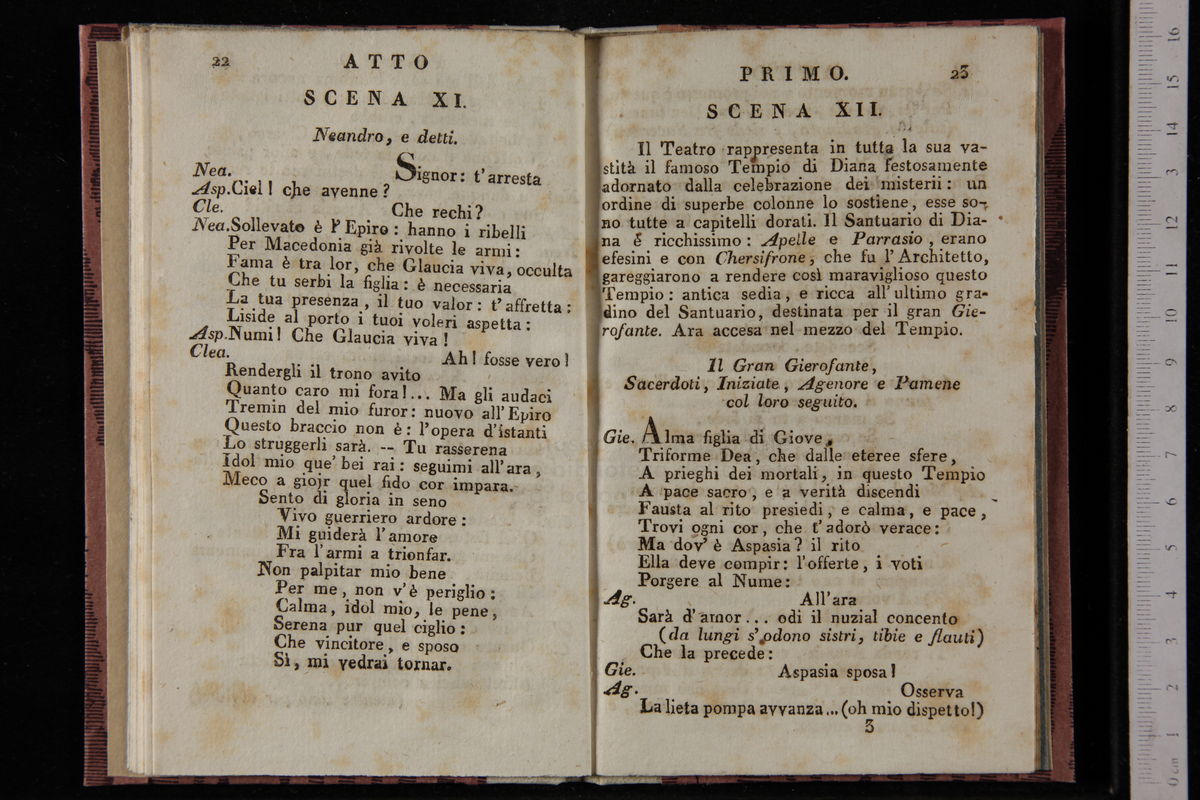 22
ATTO
SCENA XI.
Neandro, e detti.
Nea. Signor: t'arresta
Asp. Ciel! che avenne?
Cle. Che rechi?
Nea. Sollevato è l'Epiro: hanno i ribelli
Per Macedonia già rivolte le armi:
Fama è tra lor, che Glaucia viva, occulta
Che tu serbi la figlia: è necessaria
La tua presenza, il tuo valor: t'affretta:
Liside al porto i tuoi voleri aspetta:
Asp. Numi! Che Glaucia viva!
Clea. Ah! fosse vero!
Rendergli il trono avito
Quanto caro mi fora!... Ma gli audaci
Tremin del mio furor: nuovo all'Epiro
Questo braccio non è: l'opera d'istanti
Lo struggerli sarà. -- Tu rasserena
Idol mio que' bei rai: seguimi all'ara,
Meco a giojr quel fido cor impara.
Sento di gloria in seno
Vivo guerriero ardore:
Mi guiderà l'amore
Fra l'armi a trionfar.
Non palpitar mio bene
Per me, non v'è periglio:
Calma, idol mio, le pene,
Serena pur quel ciglio:
Che vincitore, e sposo
Sì, mi vedrai tornar.
PRIMO.
23
SCENA XII.
Il Teatro rappresenta in tutta la sua va-
stità il famoso Tempio di Diana festosamente
adornato dalla celebrazione dei misterii: un
ordine di superbe colonne lo sostiene, esse so-
no tutte a capitelli dorati. Il Santuario di Dia-
na è ricchissimo: Apelle e Parrasio, erano
efesini e con Chersifrone, che fu l'Architetto,
gareggiarono a rendere così maraviglioso questo
Tempio: antica sedia, e ricca all'ultimo gra-
dino del Santuario, destinata per il gran Gie-
rofante. Ara accesa nel mezzo del Tempio.
Il Gran Gierofante,
Sacerdoti, Iniziate, Agenore e Pamene
col loro seguito.
Gie. Alma figlia di Giove,
Triforme Dea, che dalle eteree sfere,
A prieghi dei mortali, in questo Tempio
A pace sacro, e a verità discendi
Fausta al rito presiedi, e calma, e pace,
Trovi ogni cor, che t'adorò verace:
Ma dov' è Aspasia? il rito
Ella deve compir: l'offerte, i voti
Porgere al Nume:
Ag. All'ara
Sarà d'amor... odi il nuzial concento
(da lungi s'odono sistri, tibie e flauti)
Che la precede:
Gie. Aspasia sposa!
Ag. Osserva
La lieta pompa avvanza... (oh mio dispetto!)
3
0 cm 1 2 3 4 5 6 7 8 9 10 11 12 13 14 15 16